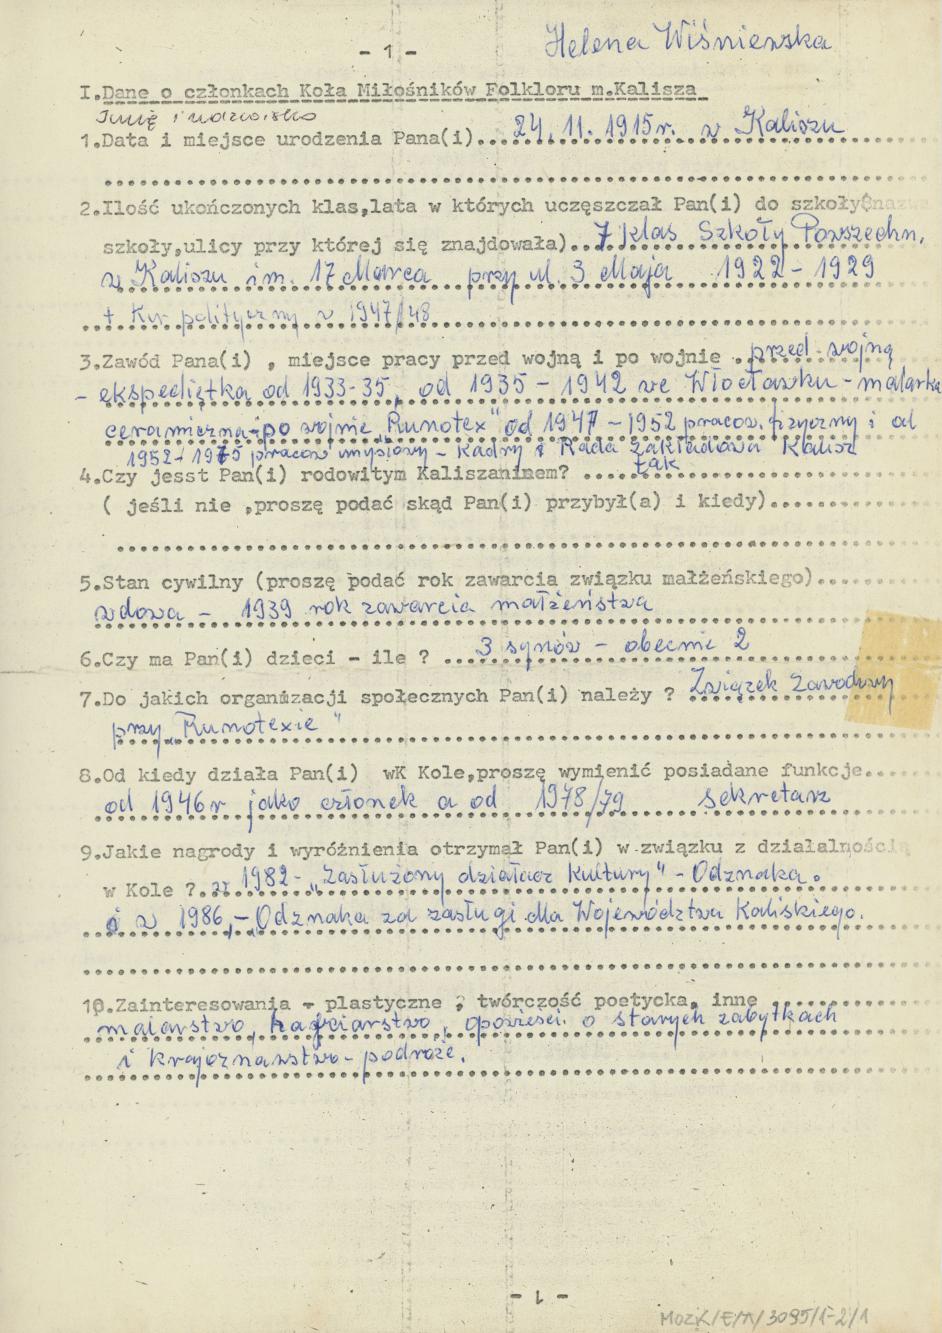 Helena Wiśniewska
- 1 -
I.Dane o członkach Koła Miłośników Folkloru m.Kalisza
Imię i nazwisko
1.Data i miejsce urodzenia Pana(i) 24.11.1915r. w Kaliszu
2.Ilość ukończonych klas,lata w których uczęszczał Pan(i) do szkoły(nazwa
szkoły,ulicy przy której się znajdowała) 7 klas Szkoły Powszechn.
w Kaliszu im. 17 Marca przy ul. 3 Maja 1922 - 1929
+ Kurs polityczny w 1947/48
3.Zawód Pana(i) , miejsce pracy przed wojną i po wojnie przed wojną
- ekspediętka od 1933-35, od 1935 - 1942 we Włocławku - malarka
ceramiczna - po wojnie „Runotex" od 1947 - 1952 pracow. fizyczny i od
1952 - 1975 pracow umysłowy - Kadry i Rada Zakładowa Kalisz
4.Czy jesst Pan(i) rodowitym Kaliszaninem? tak
( jeśli nie ,proszę podać skąd Pan(i) przybył(a) i kiedy)
5.Stan cywilny (proszę podać rok zawarcia związku małżeńskiego)
wdowa - 1939 rok zawarcia małżeństwa
6.Czy ma Pan(i) dzieci - ile ? 3 synów - obecnie 2
7.Do jakich organizacji społecznych Pan(i) należy ? Związek Zawodowy
przy „Runotexie"
8.Od kiedy działa Pan(i) wK Kole,proszę wymienić posiadane funkcje
od 1946r jako członek a od 1978/79 sekretarz
9.Jakie nagrody i wyróżnienia otrzymał Pan(i) w związku z działalnością
w Kole ? w 1982 - „Zasłużony działacz kultury" - Odznaka.
i w 1986, - „Odznaka za zasługi dla Województwa Kaliskiego.
10.Zainteresowania - plastyczne , twórczość poetycka, inne
malarstwo, hafciarstwo, opowieści o starych zabytkach
i krajoznawstwo - podroże.
- 1 -
MOZK/E/A/3095/1-2/1